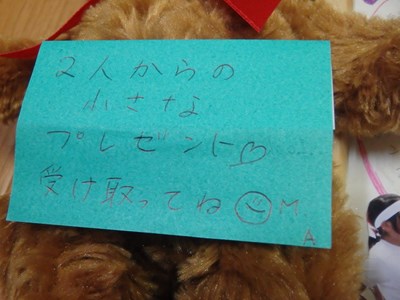 2人からの
小さな
プレゼント♡
受け取ってね☺M.
A